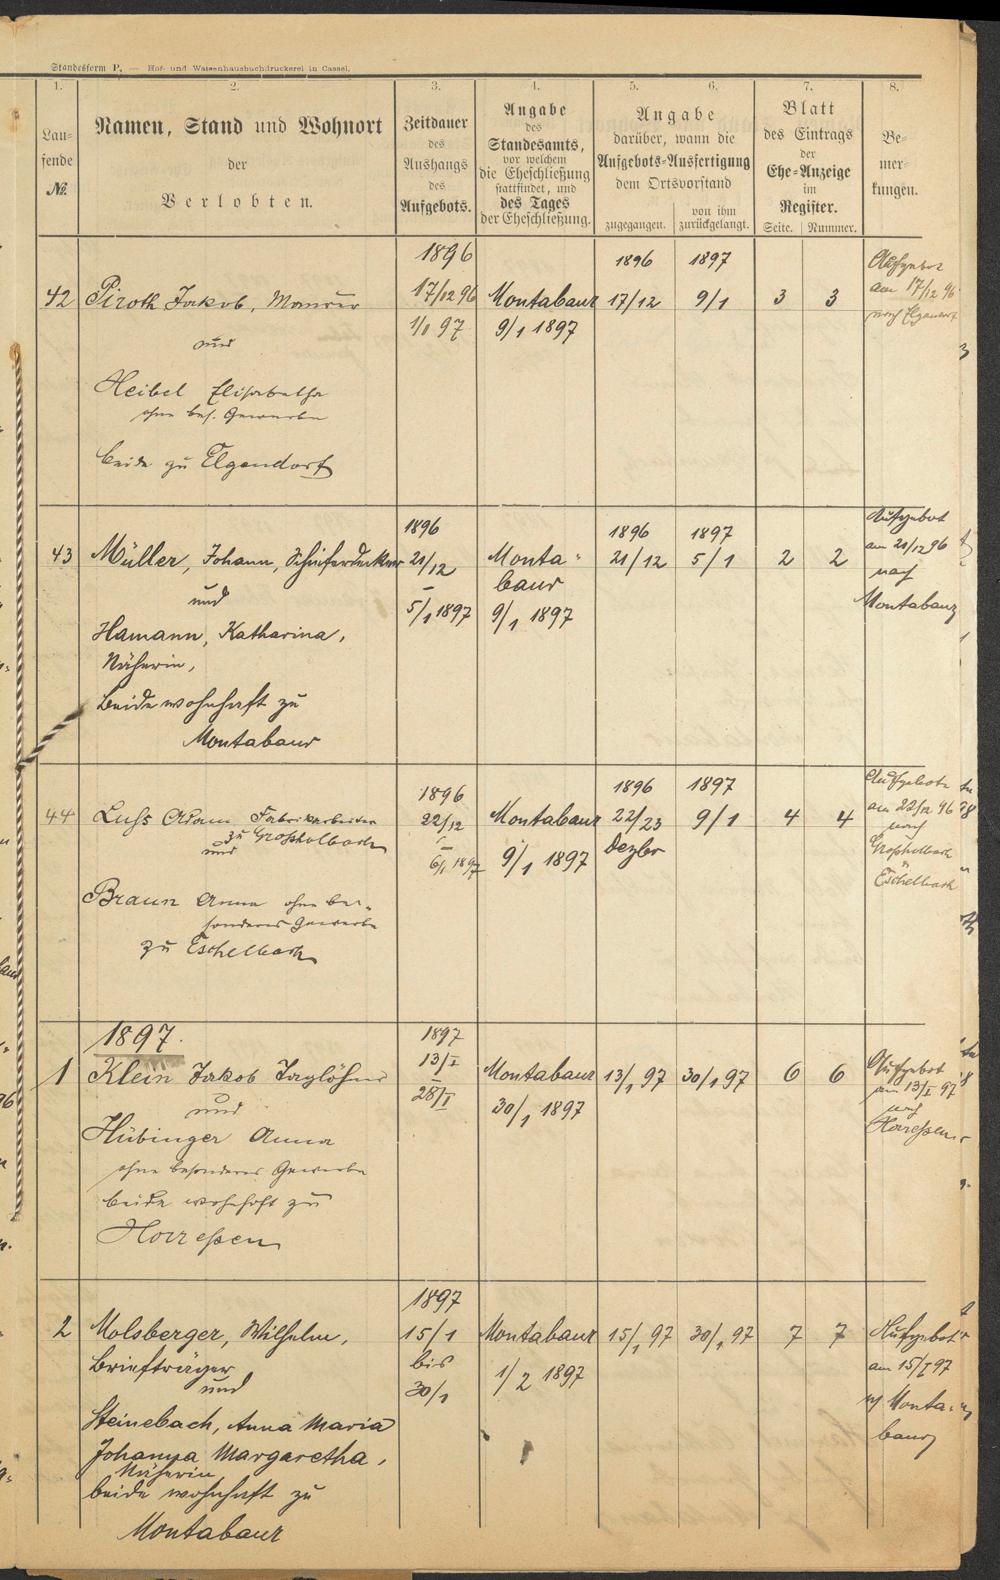 Standesform P. — Hof- und Waisenhausbuchdruckerei in Cassel.
1. 2. 3. 4. 5. 6. 7. 8.
Lau-
fende
№.
Namen, Stand und Wohnort
der
Verlobten.
Zeitdauer
des
Aushangs
des
Aufgebots.
Angabe
des
Standesamts,
vor welchem
die Eheschließung
stattfindet, und
des Tages
der Eheschließung.
Angabe
darüber, wann die
Aufgebots-Ausfertigung
dem Ortsvorstand
zugegangen.
von ihm
zurückgelangt.
Blatt
des Eintrags
der
Ehe-Anzeige
im
Register.
Seite. Nummer.
Be-
mer-
kungen.
42
Piroth Jakob, Maurer
und
Heibel Elisabetha
ohne bes. Gewerbe
beide zu Elgendorf
1896
17/12 96
97
Montabaur
9/1 1897
1896
17/12
1897
9/1
3 3
Aufgebot
am 17/12 96
nach Elgendorf
43
Müller, Johann, Schieferdecker
und
Hamann, Katharina,
Näherin,
beide wohnhaft zu
Montabaur
1896
21/12
–
5/1 1897
Monta-
baur
9/1 1897
1896
21/12
1897
5/1
2 2
Aufgebot
am 21/12 96
nach
Montabaur
44
Adam Fabrikarbeiter
zu Großholbach
und
Braun Anna ohne be-
sonderes Gewerbe
zu Eschelbach
1896
22/12
–
6/1 1897
Montabaur
9/1 1897
1896
22/23
Dezbr
1897
9/1
4 4
Aufgebote
am 22/12 96
nach
Großholbach
u
Eschelbach
1897.
1
Klein Jakob Taglöhner
und
Hübinger Anna
ohne besonderes Gewerbe
beide wohnhaft zu
Horressen
1897
13/I
–
28/I
Montabaur
30/1 1897
13/1 97
30/1 97
6 6
Aufgebot
am 13/I 97
nach
Horressen
2
Molsberger, Wilhelm,
Briefträger
und
Steinebach, Anna Maria
Johanna Margaretha,
Näherin
beide wohnhaft zu
Montabaur
1897
15/1
bis
30/1
Montabaur
1/2 1897
15/1 97
30/1 97
7 7
Aufgebot
am 15/I 97
Monta-
baur